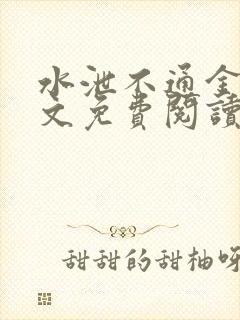 水泄不通全
文免費閱讀
甜甜的甜柚呀